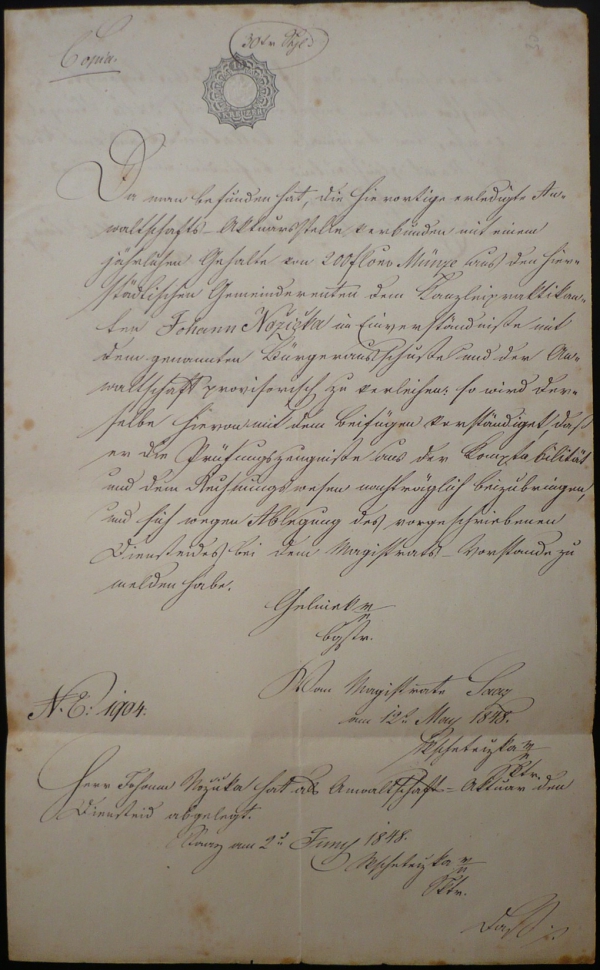 Copia.
30 kr
Da man befunden hat, die hierortige erledigte An-
waltschafts-Aktuarsstelle, verbunden mit einem
jährlichen Gehalte von 200 fl Conv Münze aus den hier-
städtischen Gemeinderenten dem Kanzleipraktikan-
ten Johann Nozizka im Einverständniße mit
dem genannten Bürgerausschuße und der An-
waltschaft provisorisch zu verleihen, so wird der-
selbe hievon mit dem Beifügen verständiget, daß
er die Prüfungszeugniße aus der Komptabilität
und dem Rechnungswesen nachträglich beizubringen,
und sich wegen Ablegung des vorgeschriebenen
Diensteides bei dem Magistrats-Vorstande zu
melden habe.
bgstr.
Vom Magistrate Saaz
am 12t May 1848.
N. E: 1904.
Sktr.
Herr Johann Nozizka hat als Anwaltschaft-Aktuar den
Diensteid abgelegt.
Saaz am 2t Juny 1848.
Sktr.
Daß